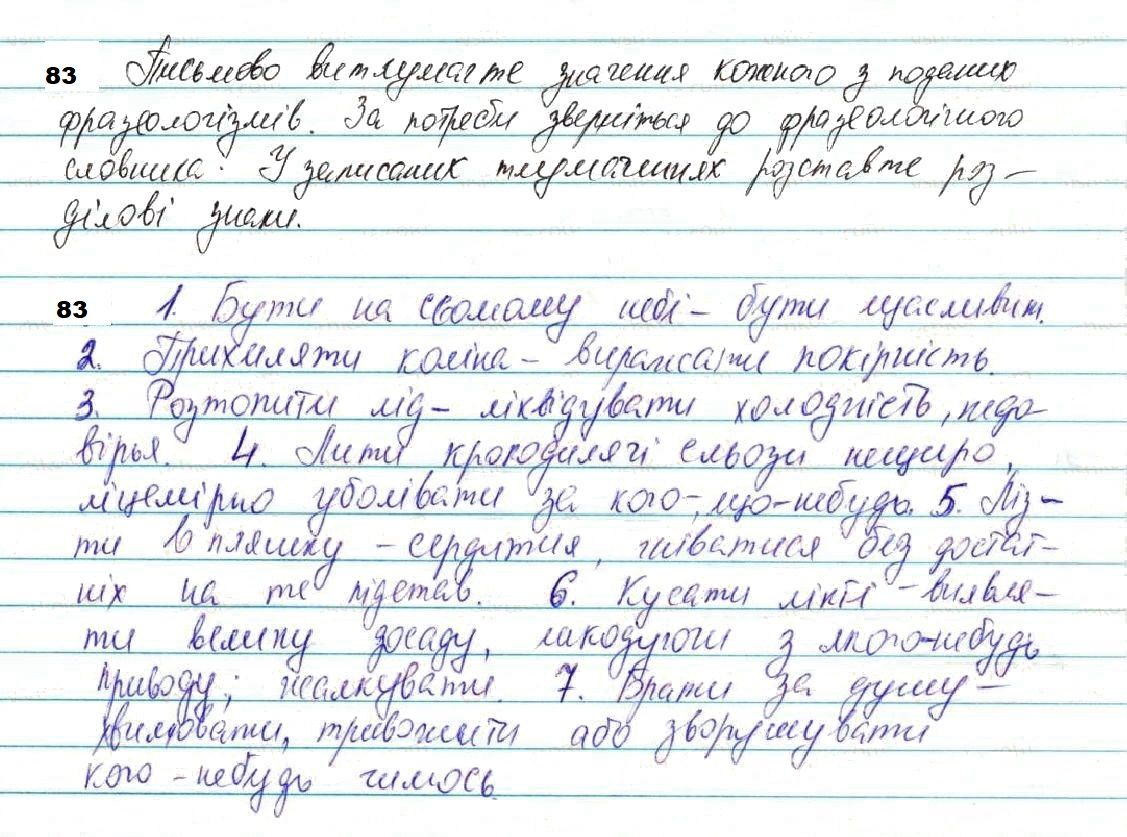 83 Письмово витлумачте значення кожного з поданих
фразеологізмів. За потреби зверніться до фразеологічного
словника. У записаних тлумаченнях розставте роз-
ділові знаки.
83 1. Бути на сьомому небі – бути щасливим.
2. Прихиляти коліна – виражати покірність.
3. Розтопити лід – ліквідувати холодність, недо-
вірья. 4. Лити крокодилячі сльози нещиро,
лицемірно уболівати за кого-, що-небудь. 5. Ліз-
ти в пляшку – сердитися, гніватися без достат-
ніх на те підстав. 6. Кусати лікті – виявля-
ти велику досаду, шкодуючи з якого-небудь
приводу; жалкувати. 7. Брати за душу –
хвилювати, тривожити або зворушувати
кого-небудь чимось.